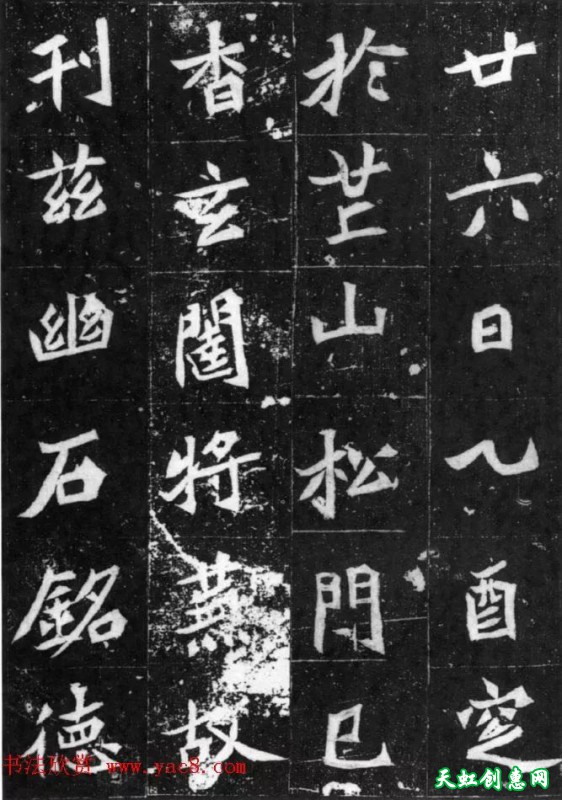 廿六日乙酉窆
於芒山松門已
杳玄闺將蕪故
刊茲幽石銘德
书法欣赏 www.yac8.com
天虹创惠网